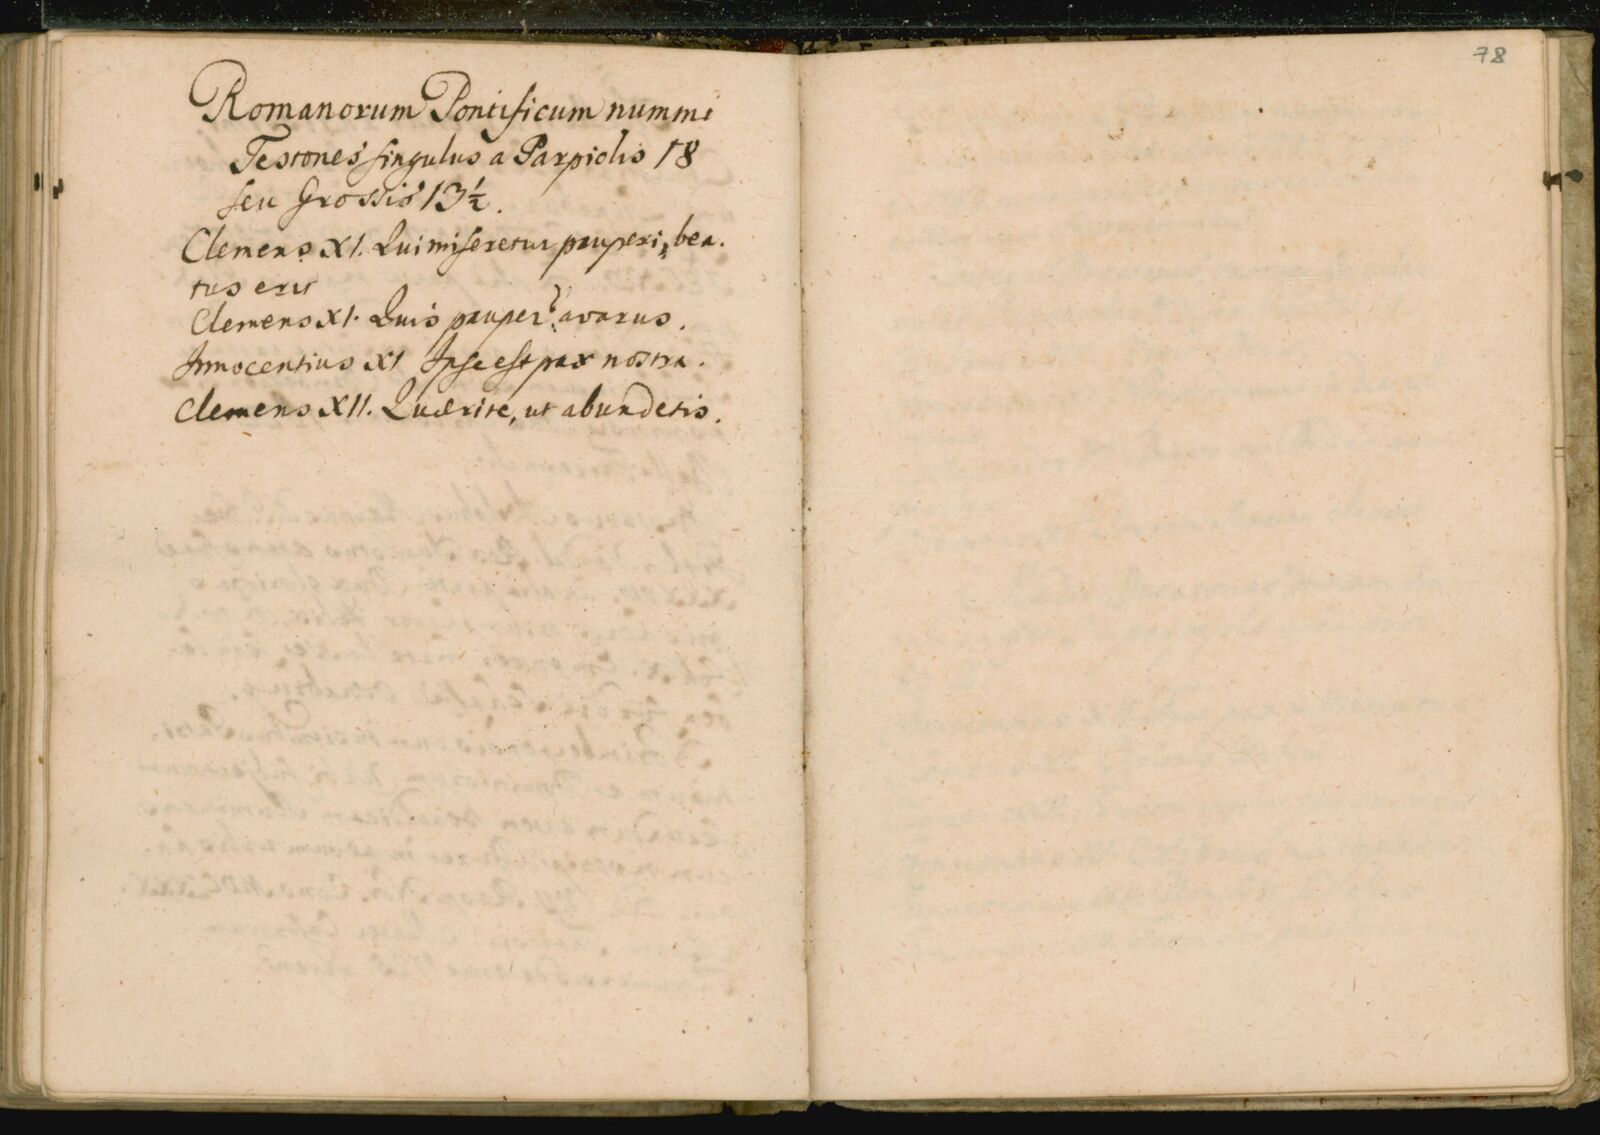 Romanorum Pontificum nummi
Testones singulus a Parpiolis 18
seu Grossis 13½.
Clemens XI. Qui miseretur pauperi, bea-
tus erit
Clemens XI. Quis pauper? avarus.
Innocentius XI Ipse est pax nostra.
Clemens XII. Quærite, ut abundetis.
78